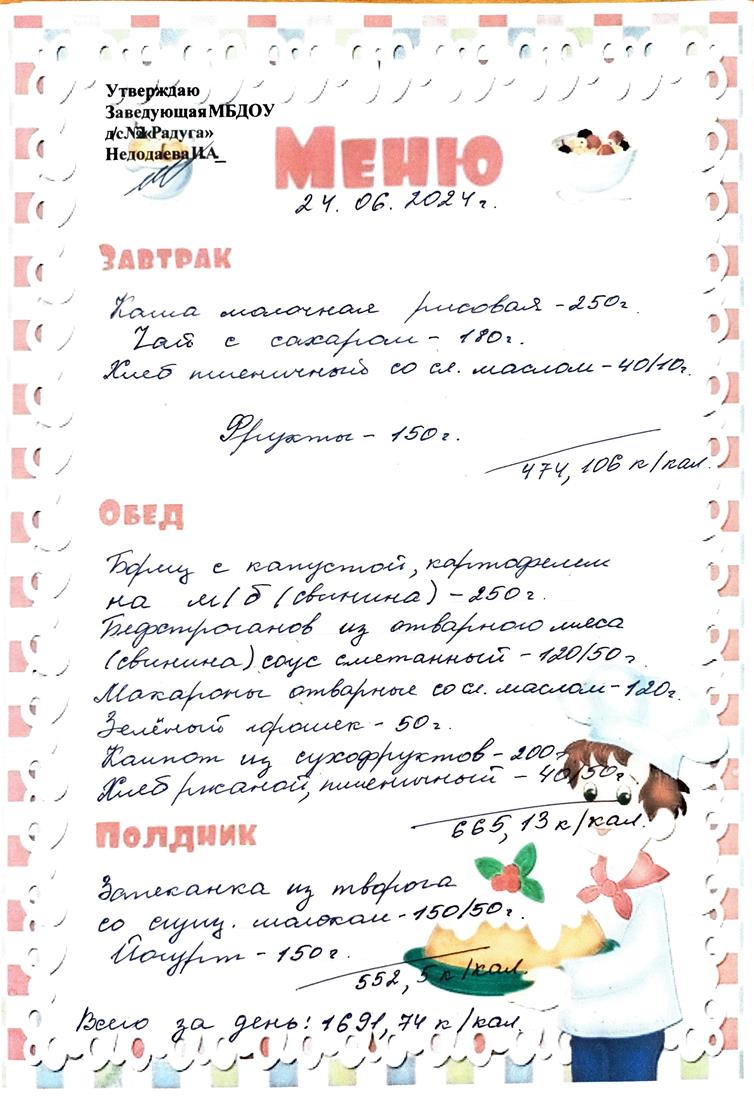 Утверждаю
Заведующая МБДОУ
д/с№2«Радуга»
Недодаева И.А_
Меню
24. 06. 2024г.
Завтрак
Каша молочная рисовая - 250г.
Чай с сахаром - 180г.
Хлеб пшеничный со сл. маслом - 40/10г.
Фрукты - 150г.
474, 106 к/кал.
Обед
Борщ с капустой, картофелем
на м/б (свинина) - 250г.
Бефстроганов из отварного мяса
(свинина) соус сметанный - 120/50г.
Макароны отварные со сл. маслом - 120г.
Зелёный горошек - 50г.
Компот из сухофруктов - 200г
Хлеб ржаной, пшеничный - 40/50г.
665, 13 к/кал.
Полдник
Запеканка из творога
со сгущ. молоком - 150/50г.
Йогурт - 150г.
552, 5 к/кал.
Всего за день: 1691, 74 к/кал.